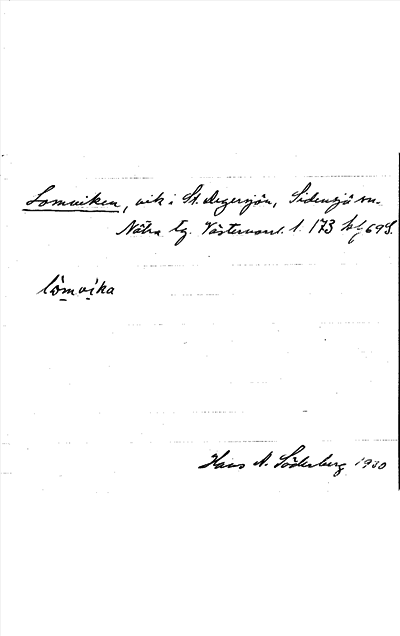 Lomviken, vik i St. Degersjön, Sidensjö sn.
Nätra tg. Västernorrl. l. 173 bl 69S.
lòmvika
Hans A. Söderberg 1930